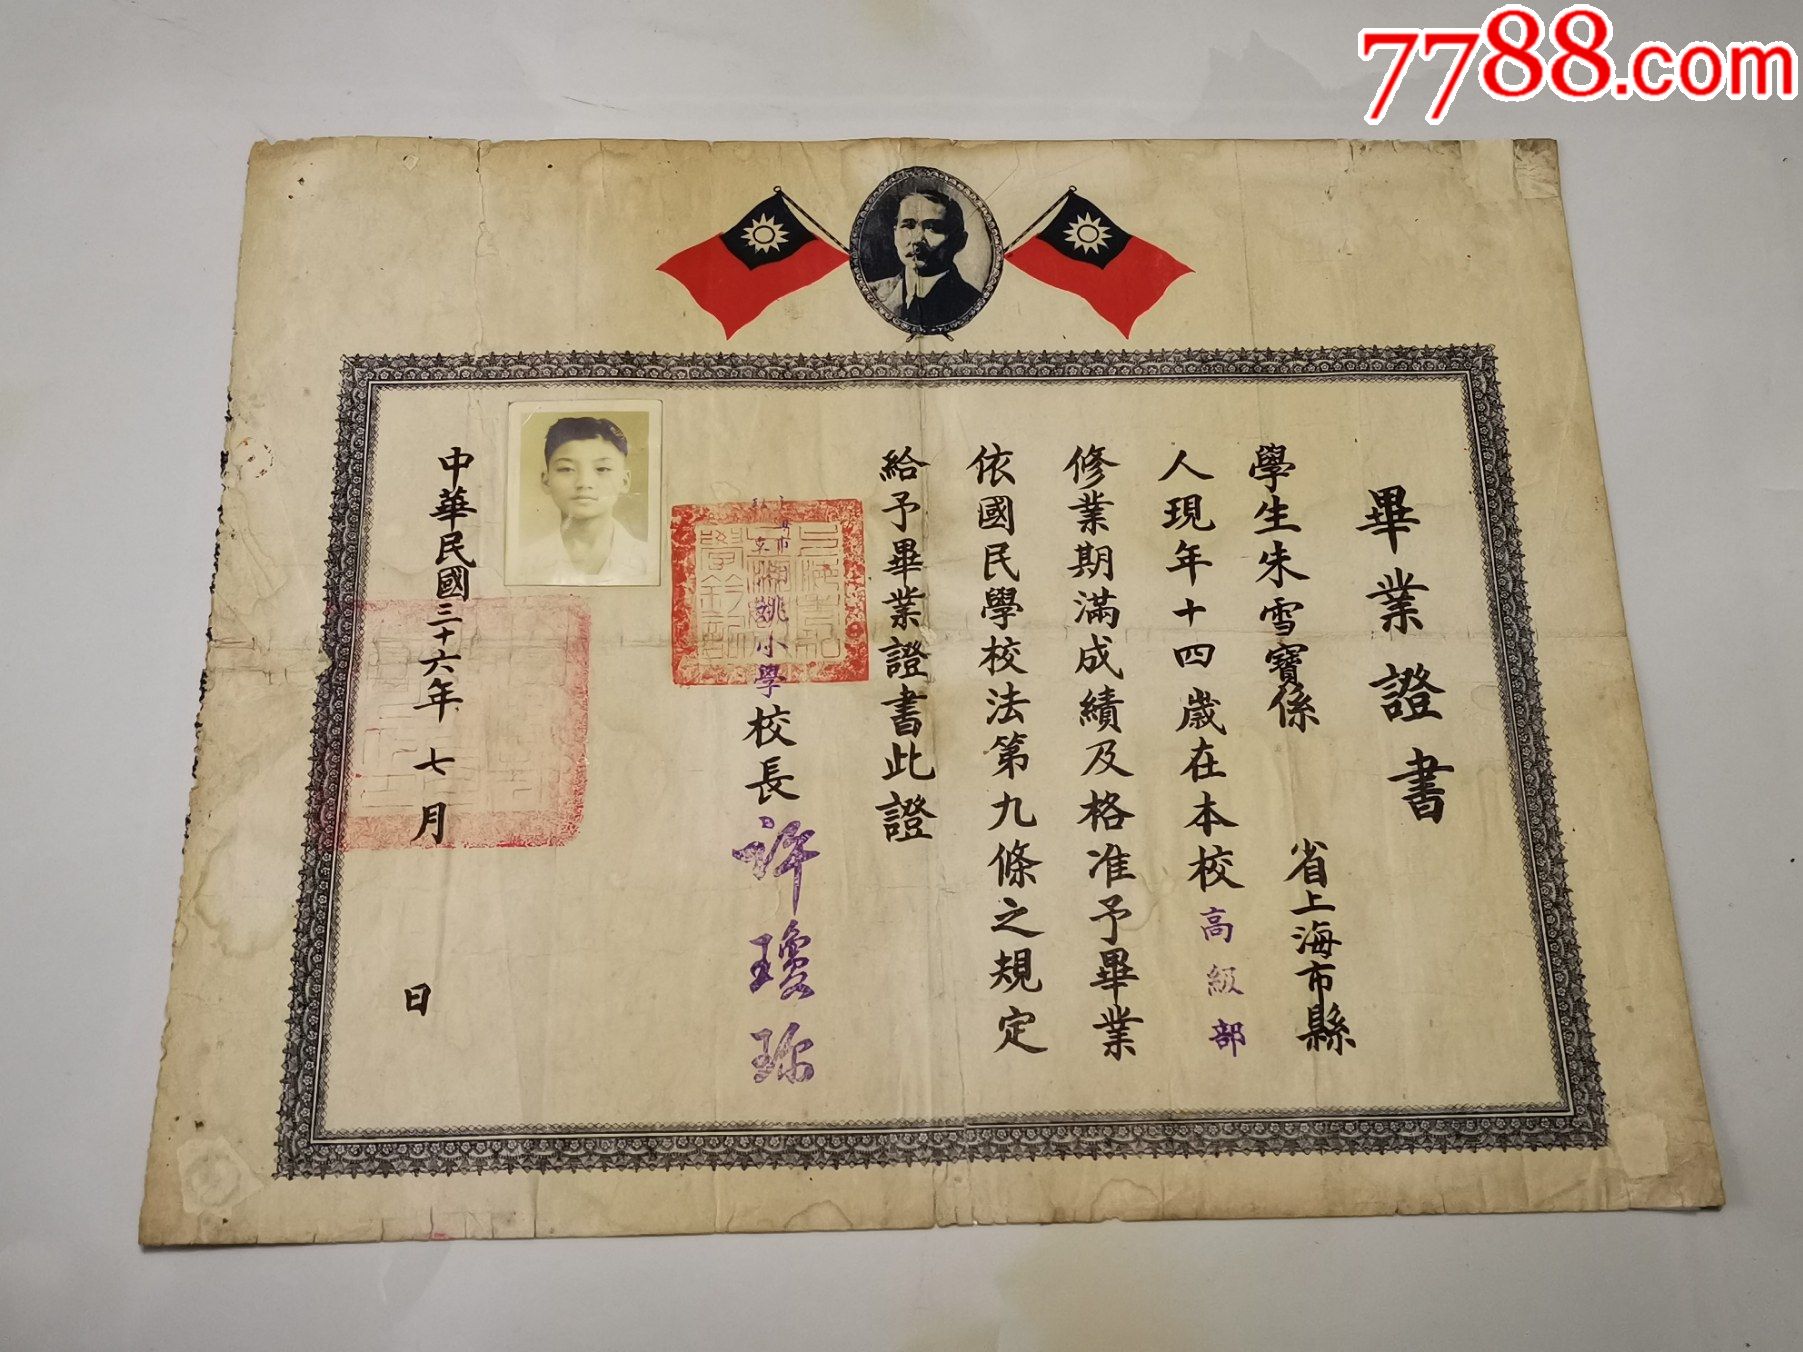 7788.com
畢業證書
學生朱雪寶係 省上海市縣
人現年十四歲在本校高級部
修業期滿成績及格准予畢業
依國民學校法第九條之規定
給予畢業證書此證
小學校長許瓊珎
中華民國三十六年七月 日